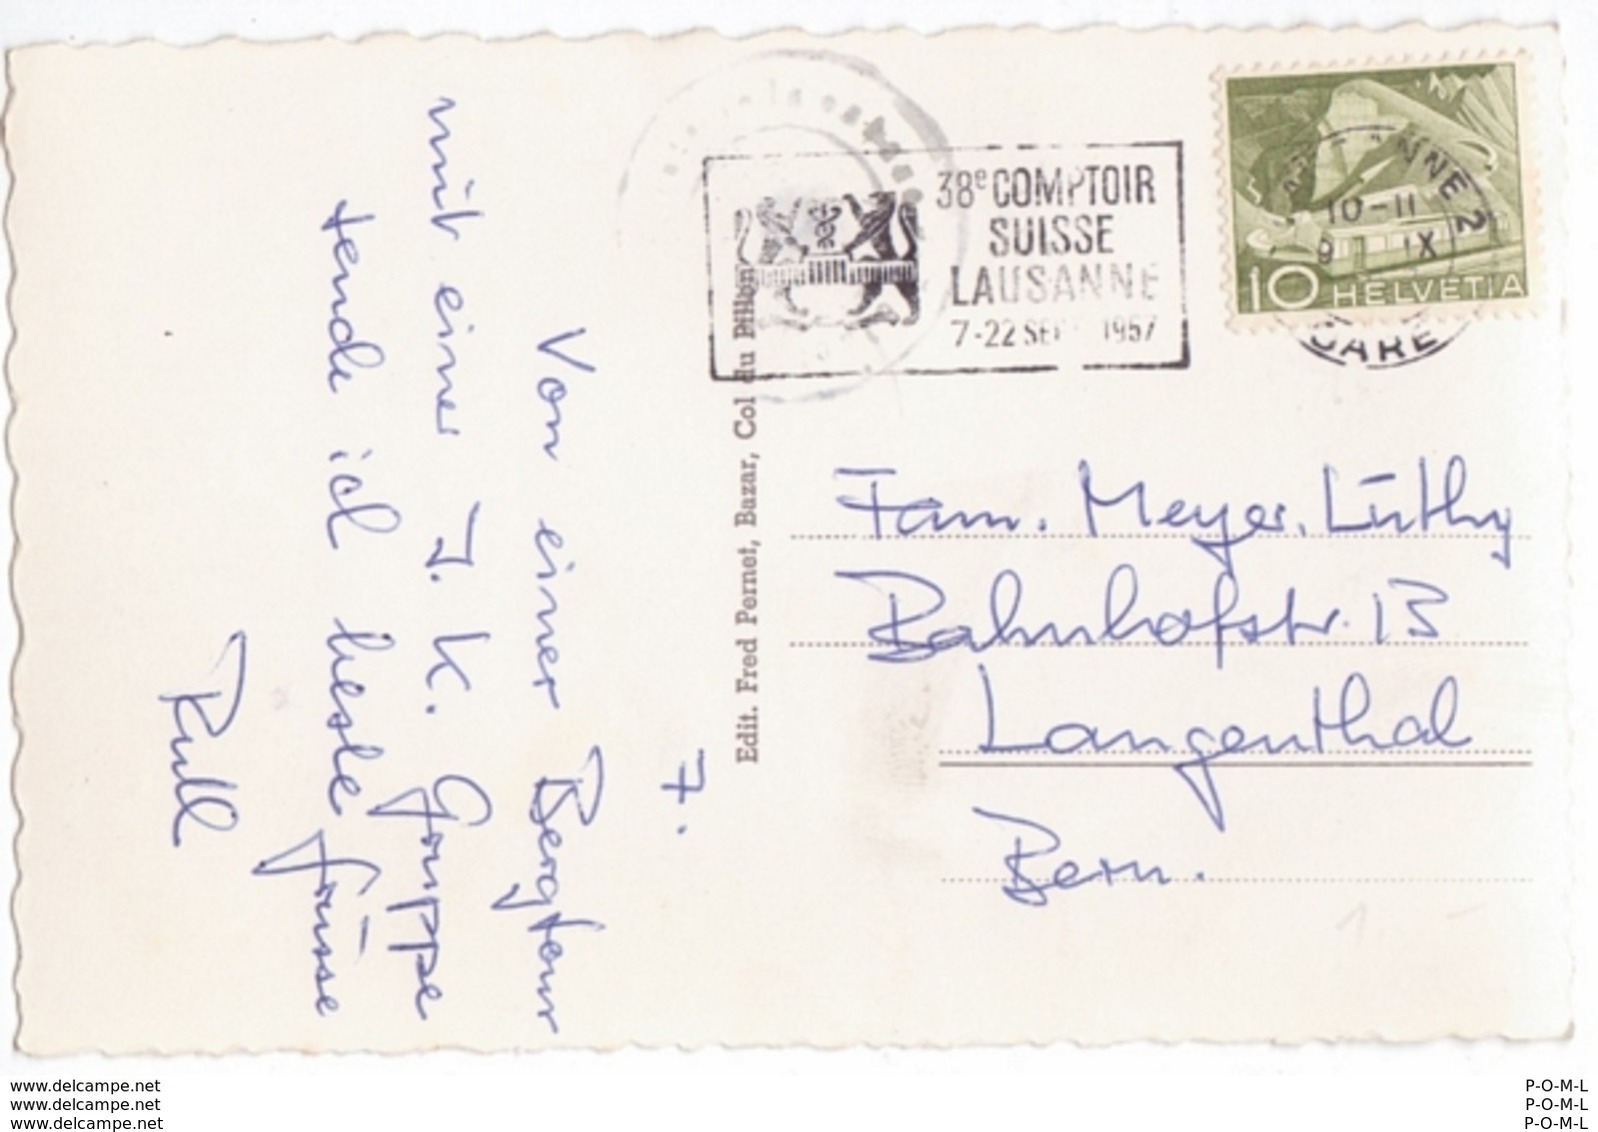 7.
Von einer Bergtour
mit einer J. K. Gruppe
sende ich beste Grüsse
Ruedi
Edit. Fred Pernet, Bazar, Col du Pillon
38e COMPTOIR
SUISSE
LAUSANNE
7-22 SEPT 1957
10-11
9 IX
GARE
10 HELVETIA
Fam. Meyer-Lüthy
Bahnhofstr. 13
Langenthal
Bern.
www.delcampe.net
www.delcampe.net
www.delcampe.net
P-O-M-L
P-O-M-L
P-O-M-L